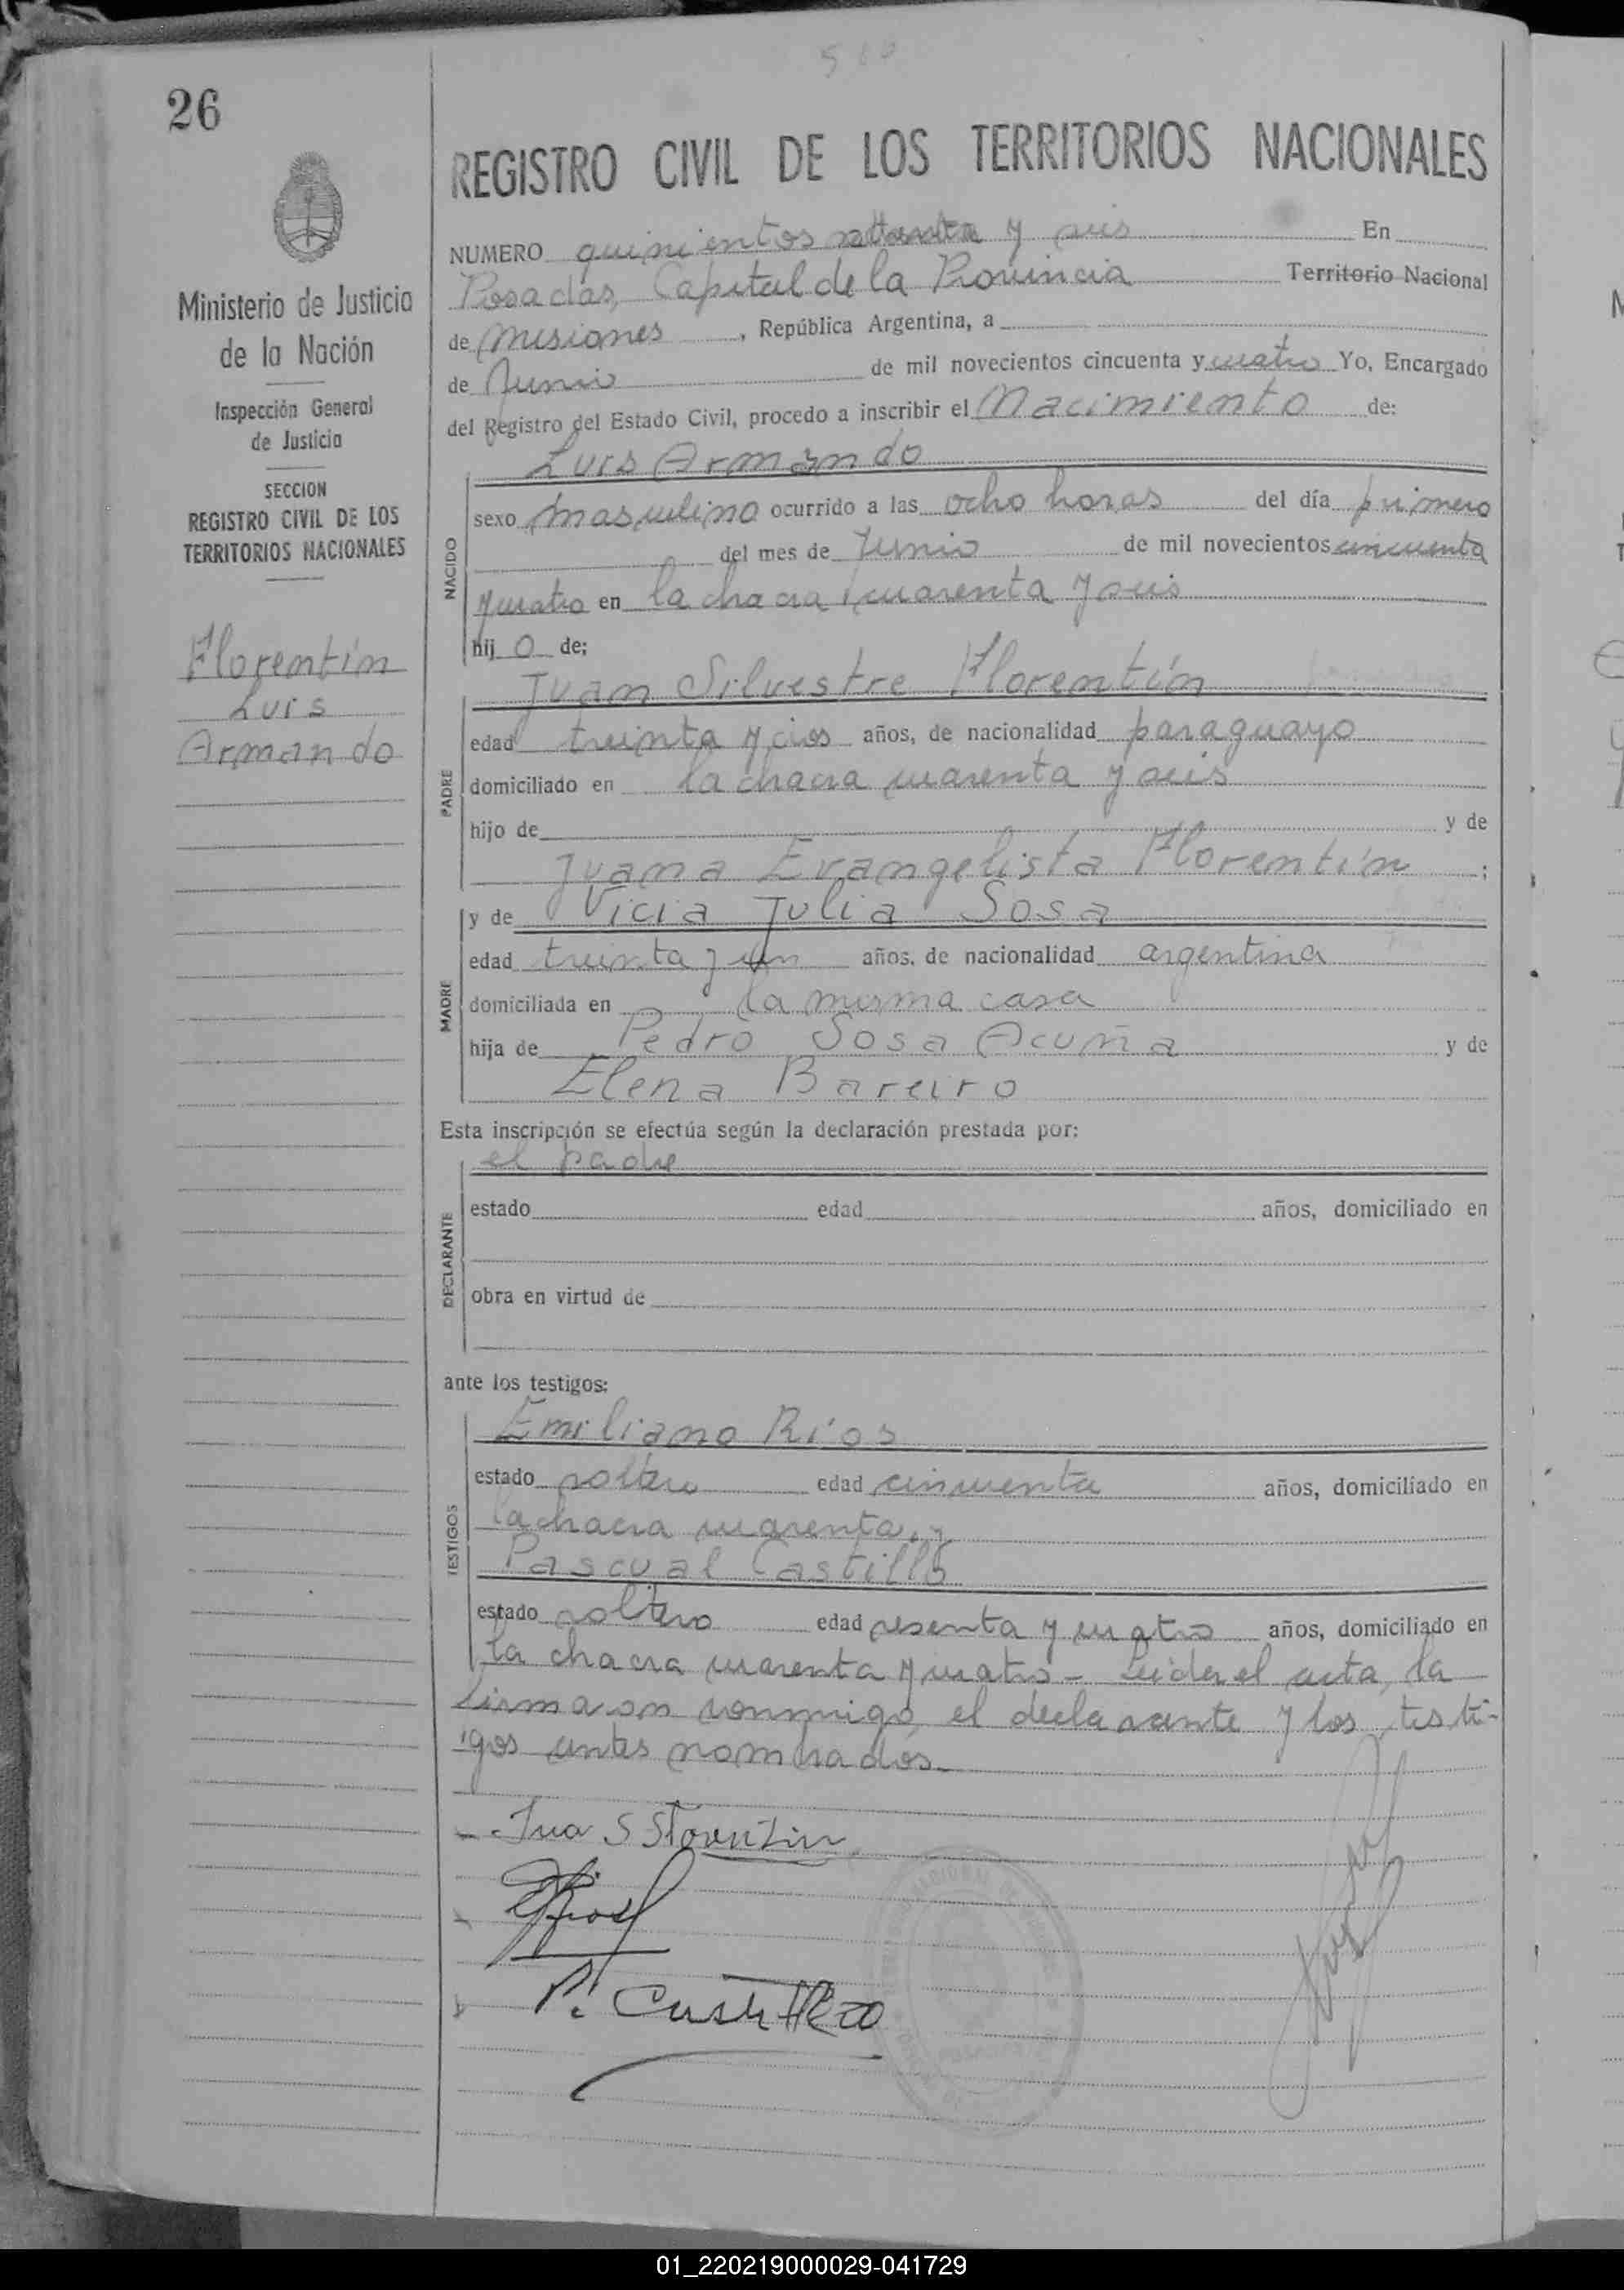 26
REGISTRO CIVIL DE LOS TERRITORIOS NACIONALES
Ministerio de Justicia
de la Nación
Inspección General
de Justicia
SECCION
REGISTRO CIVIL DE LOS
TERRITORIOS NACIONALES
Florentín
Luis
Armando
NUMERO quinientos y seis En
Posadas, Capital de la Provincia Territorio Nacional
de Misiones, República Argentina, a
de Junio de mil novecientos cincuenta y cuatro Yo, Encargado
del Registro del Estado Civil, procedo a inscribir el Nacimiento de:
Luis Armando
NACIDO
sexo masculino ocurrido a las ocho horas del día primero
del mes de Junio de mil novecientos cincuenta
y cuatro en la chacra cuarenta y seis
hij o de;
Juan Silvestre Florentín
PADRE
edad treinta y años, de nacionalidad paraguayo
domiciliado en la chacra cuarenta y seis
hijo de y de
Juana Evangelista Florentín ;
y de Vicia Julia Sosa
MADRE
edad treinta y un años, de nacionalidad argentina
domiciliada en la misma casa
hija de Pedro Sosa Acuña y de
Elena Bareiro
Esta inscripción se efectúa según la declaración prestada por:
el padre
DECLARANTE
estado edad años, domiciliado en
obra en virtud de
ante los testigos:
Emiliano Ríos
TESTIGOS
estado soltero edad cincuenta años, domiciliado en
la chacra cuarenta, y
Pascual Castillo
estado soltero edad sesenta y cuatro años, domiciliado en
la chacra cuarenta y cuatro - Leida el acta, la
firmaron conmigo, el declarante y los testi-
gos antes nombrados.-
Jua S Florentin
P. Castillo
01_220219000029-041729